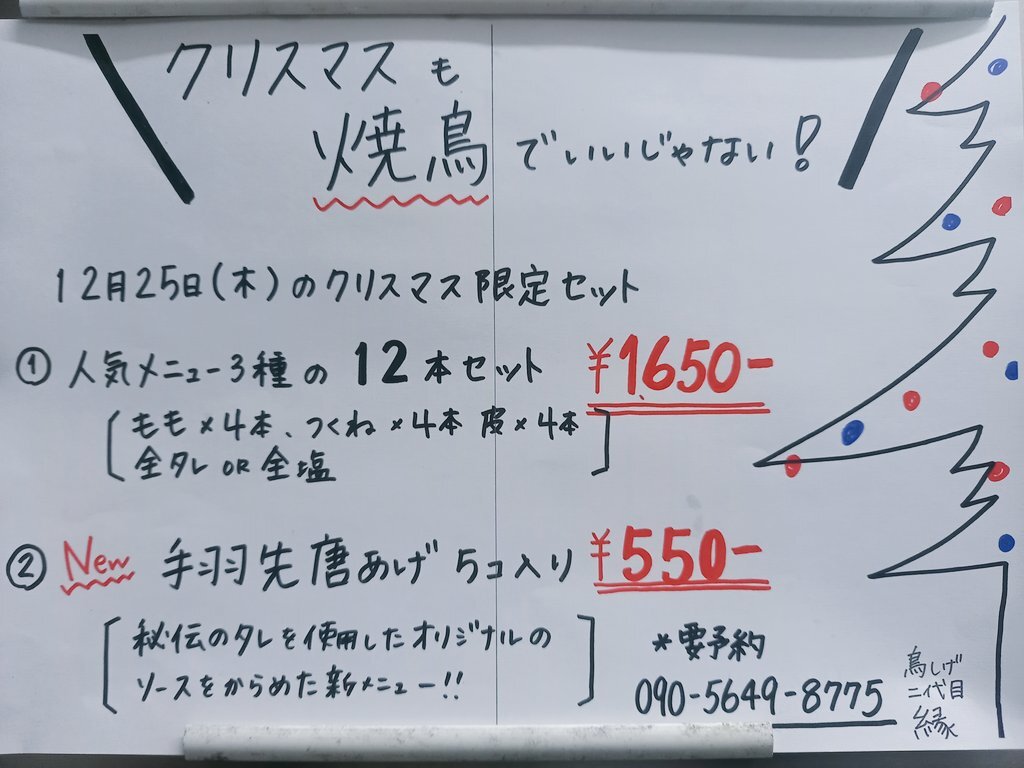 クリスマスも
焼鳥でいいじゃない!
12月25日(木)のクリスマス限定セット
① 人気メニュー3種の12本セット ¥1650-
[ もも×4本、つくね×4本 皮×4本
全タレ OR 全塩 ]
② New 手羽先唐あげ 5コ入り ¥550-
[ 秘伝のタレを使用したオリジナルの
ソースをからめた新メニュー!! ]
*要予約
090-5649-8775
鳥しげ
二代目
縁